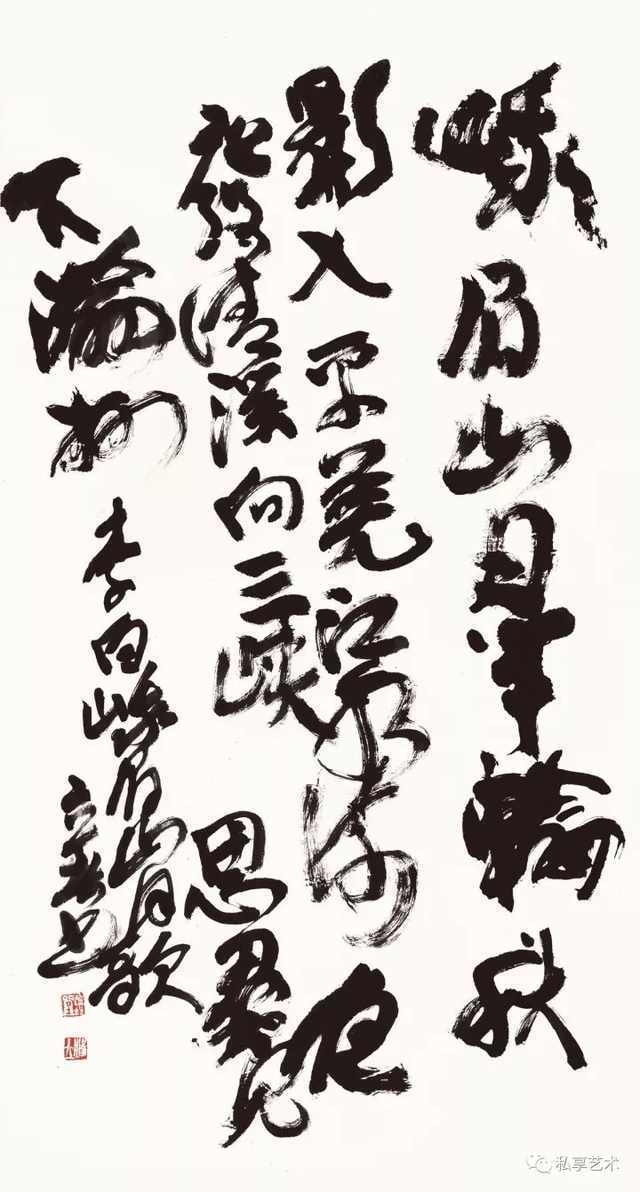 峨眉山月半輪秋
影入平羌江水流夜
發清溪向三峽思君不見
下渝州
李白峨眉山月歌
書
私享艺术